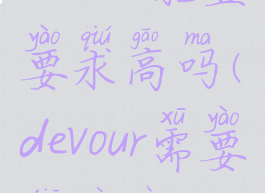 yào qiú gāo ma
要求高吗(
xū yào
devour需要